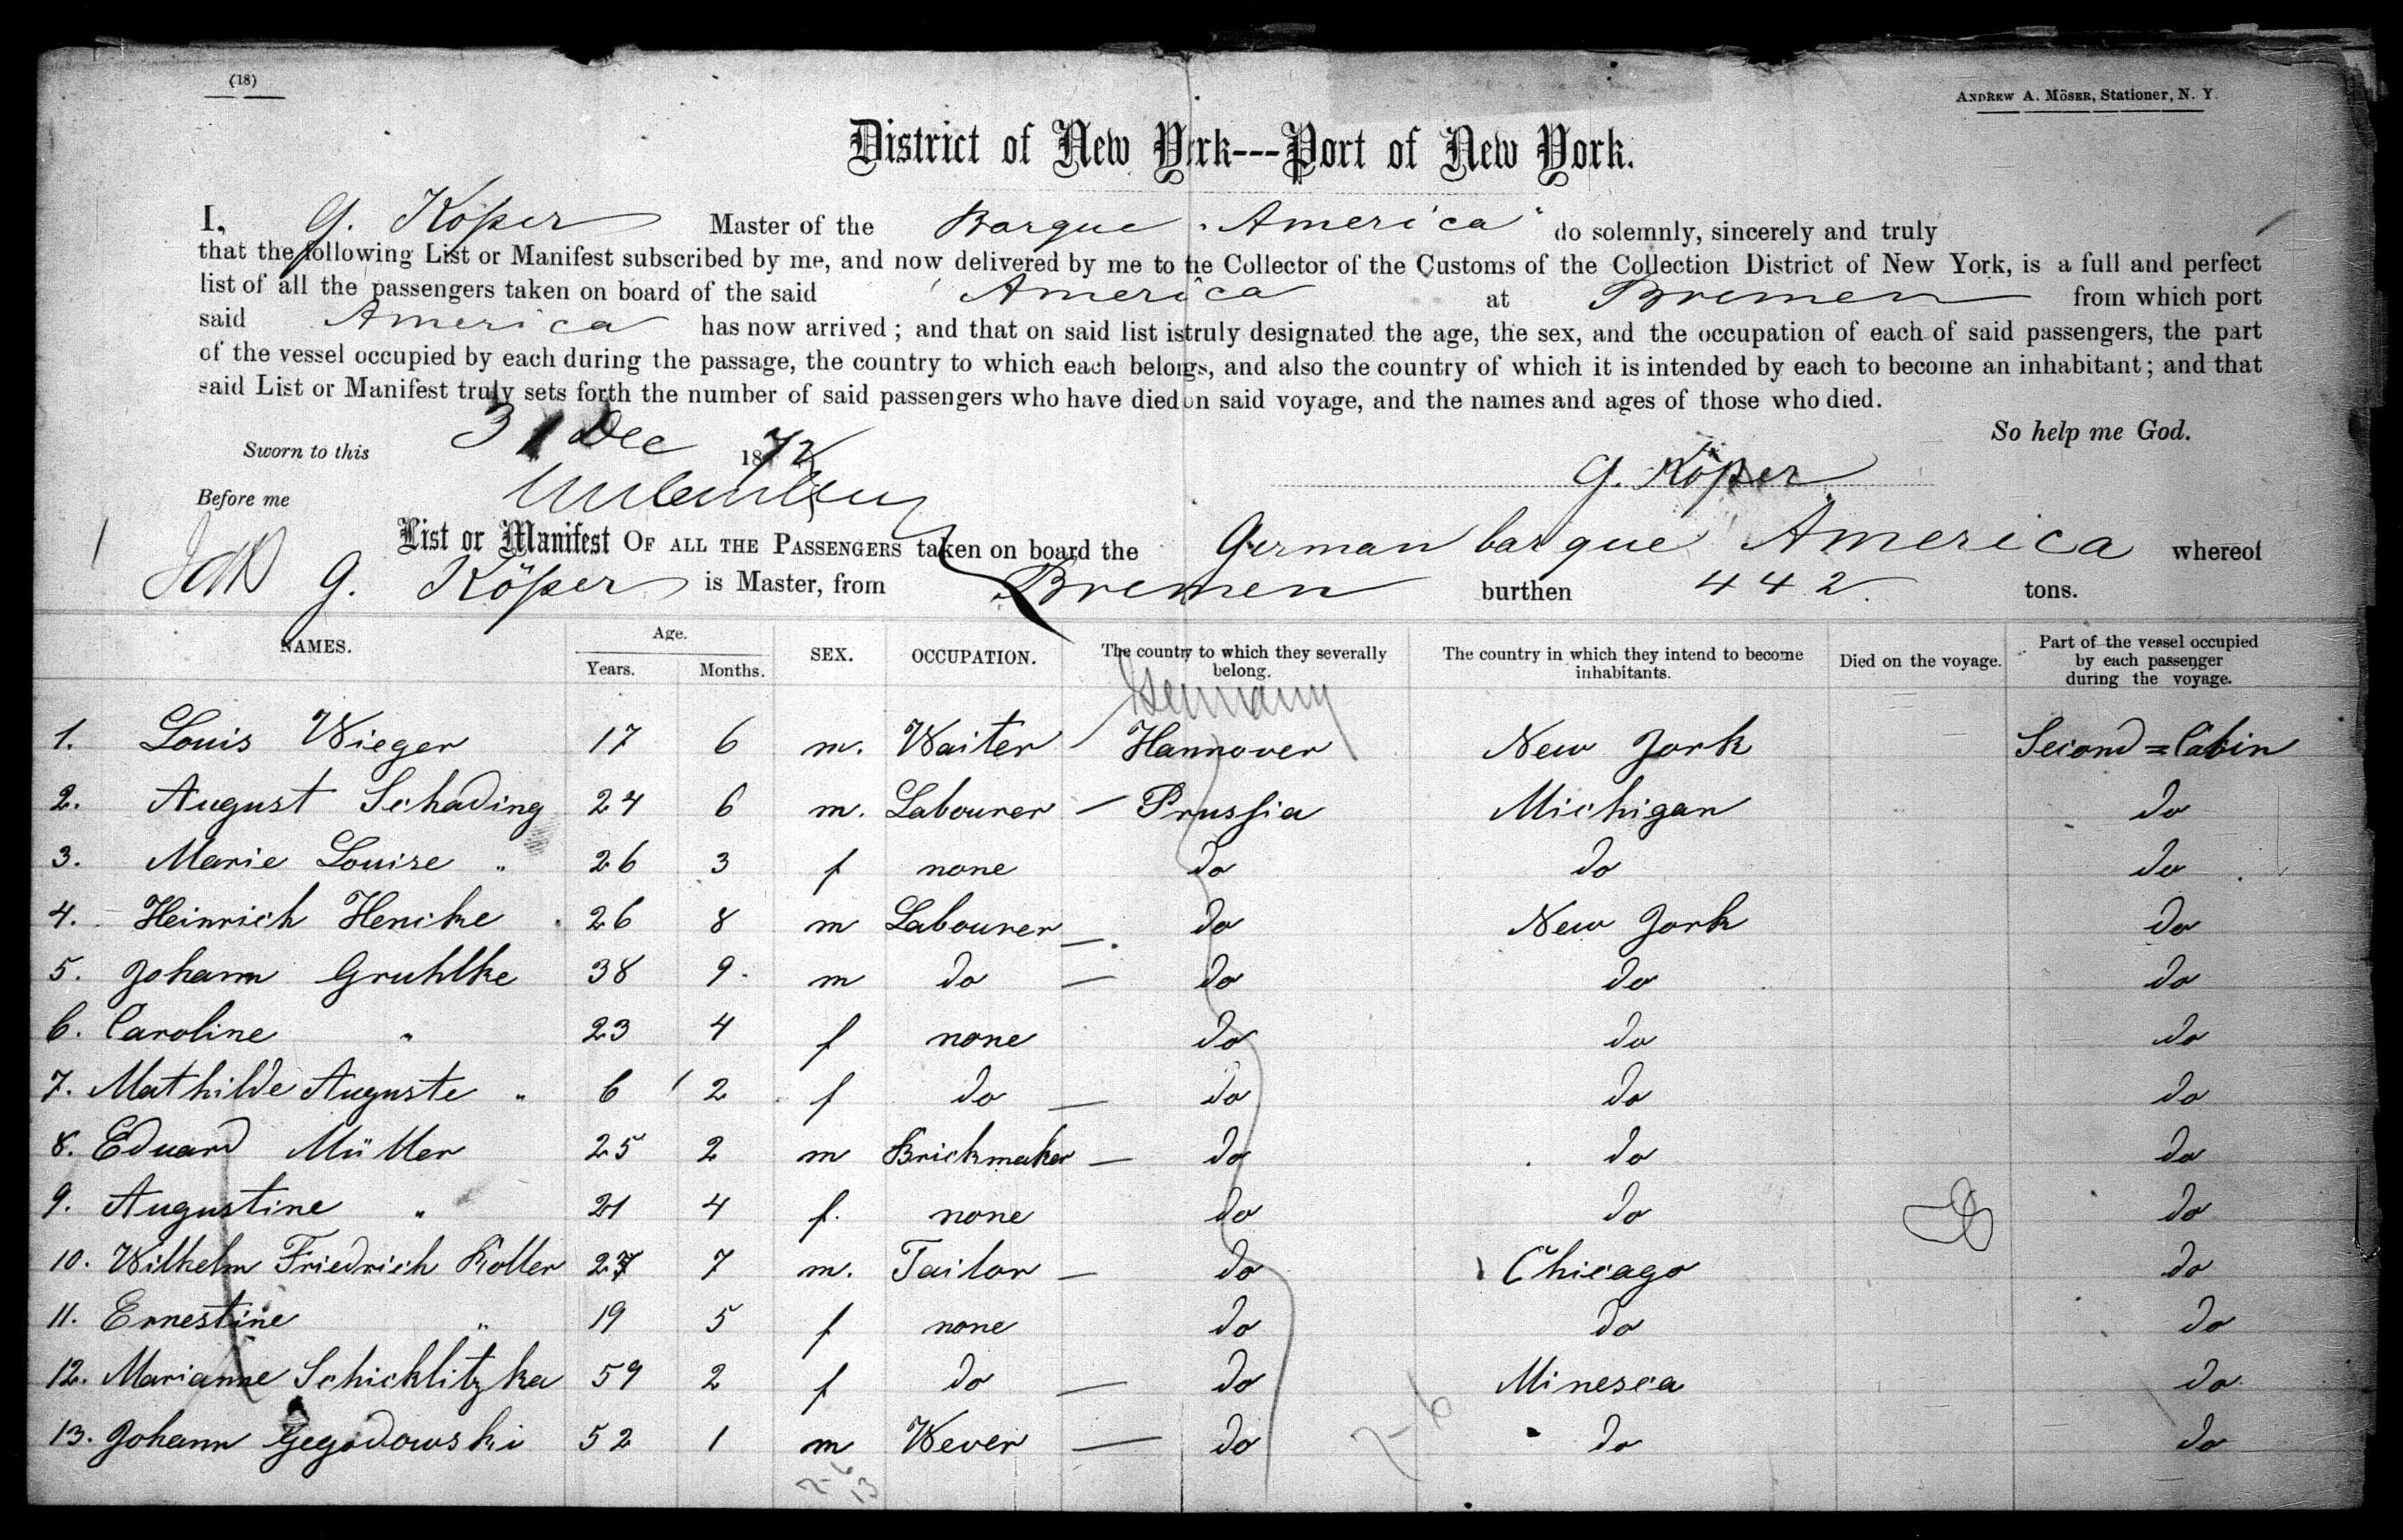 (18)
ANDREW A. MÖSER, Stationer, N. Y.
District of New York---Port of New York.
I, G. Köper Master of the Barque "America" do solemnly, sincerely and truly
that the following List or Manifest subscribed by me, and now delivered by me to he Collector of the Customs of the Collection District of New York, is a full and perfect
list of all the passengers taken on board of the said America at Bremen from which port
said America has now arrived; and that on said list is truly designated the age, the sex, and the occupation of each of said passengers, the part
of the vessel occupied by each during the passage, the country to which each belongs, and also the country of which it is intended by each to become an inhabitant; and that
said List or Manifest truly sets forth the number of said passengers who have died on said voyage, and the names and ages of those who died.
So help me God.
Sworn to this 31 Dec 1872
G. Köper
Before me
List or Manifest OF ALL THE PASSENGERS taken on board the German barque America whereof
G. Köper is Master, from Bremen burthen 442 tons.
NAMES. Age. Years. Months. SEX. OCCUPATION. The country to which they severally belong. The country in which they intend to become inhabitants. Died on the voyage. Part of the vessel occupied by each passenger during the voyage.
Germany
1. Louis Wieger 17 6 m. Waiter Hannover New York Second=Cabin
2. August Schading 24 6 m. Labourer — Prussia Michigan do
3. Marie Louise " 26 3 f none do do do
4. Heinrich Hencke 26 8 m Labourer — do New York do
5. Johann Gruhlke 38 9 m do — do do do
6. Caroline " 23 4 f none do do do
7. Mathilde Auguste " 6 2 f do — do do do
8. Eduard Müller 25 2 m Brickmaker — do do do
9. Augustine " 21 4 f. none do do do
10. Wilhelm Friedrich Koller 27 7 m. Tailor — do Chicago do
11. Ernestine " 19 5 f none do do do
12. Marianne Schicklitzka 59 2 f do — do Minesea do
13. Johann Gegodowski 52 1 m Wever — do do do
2-6
2-6
13